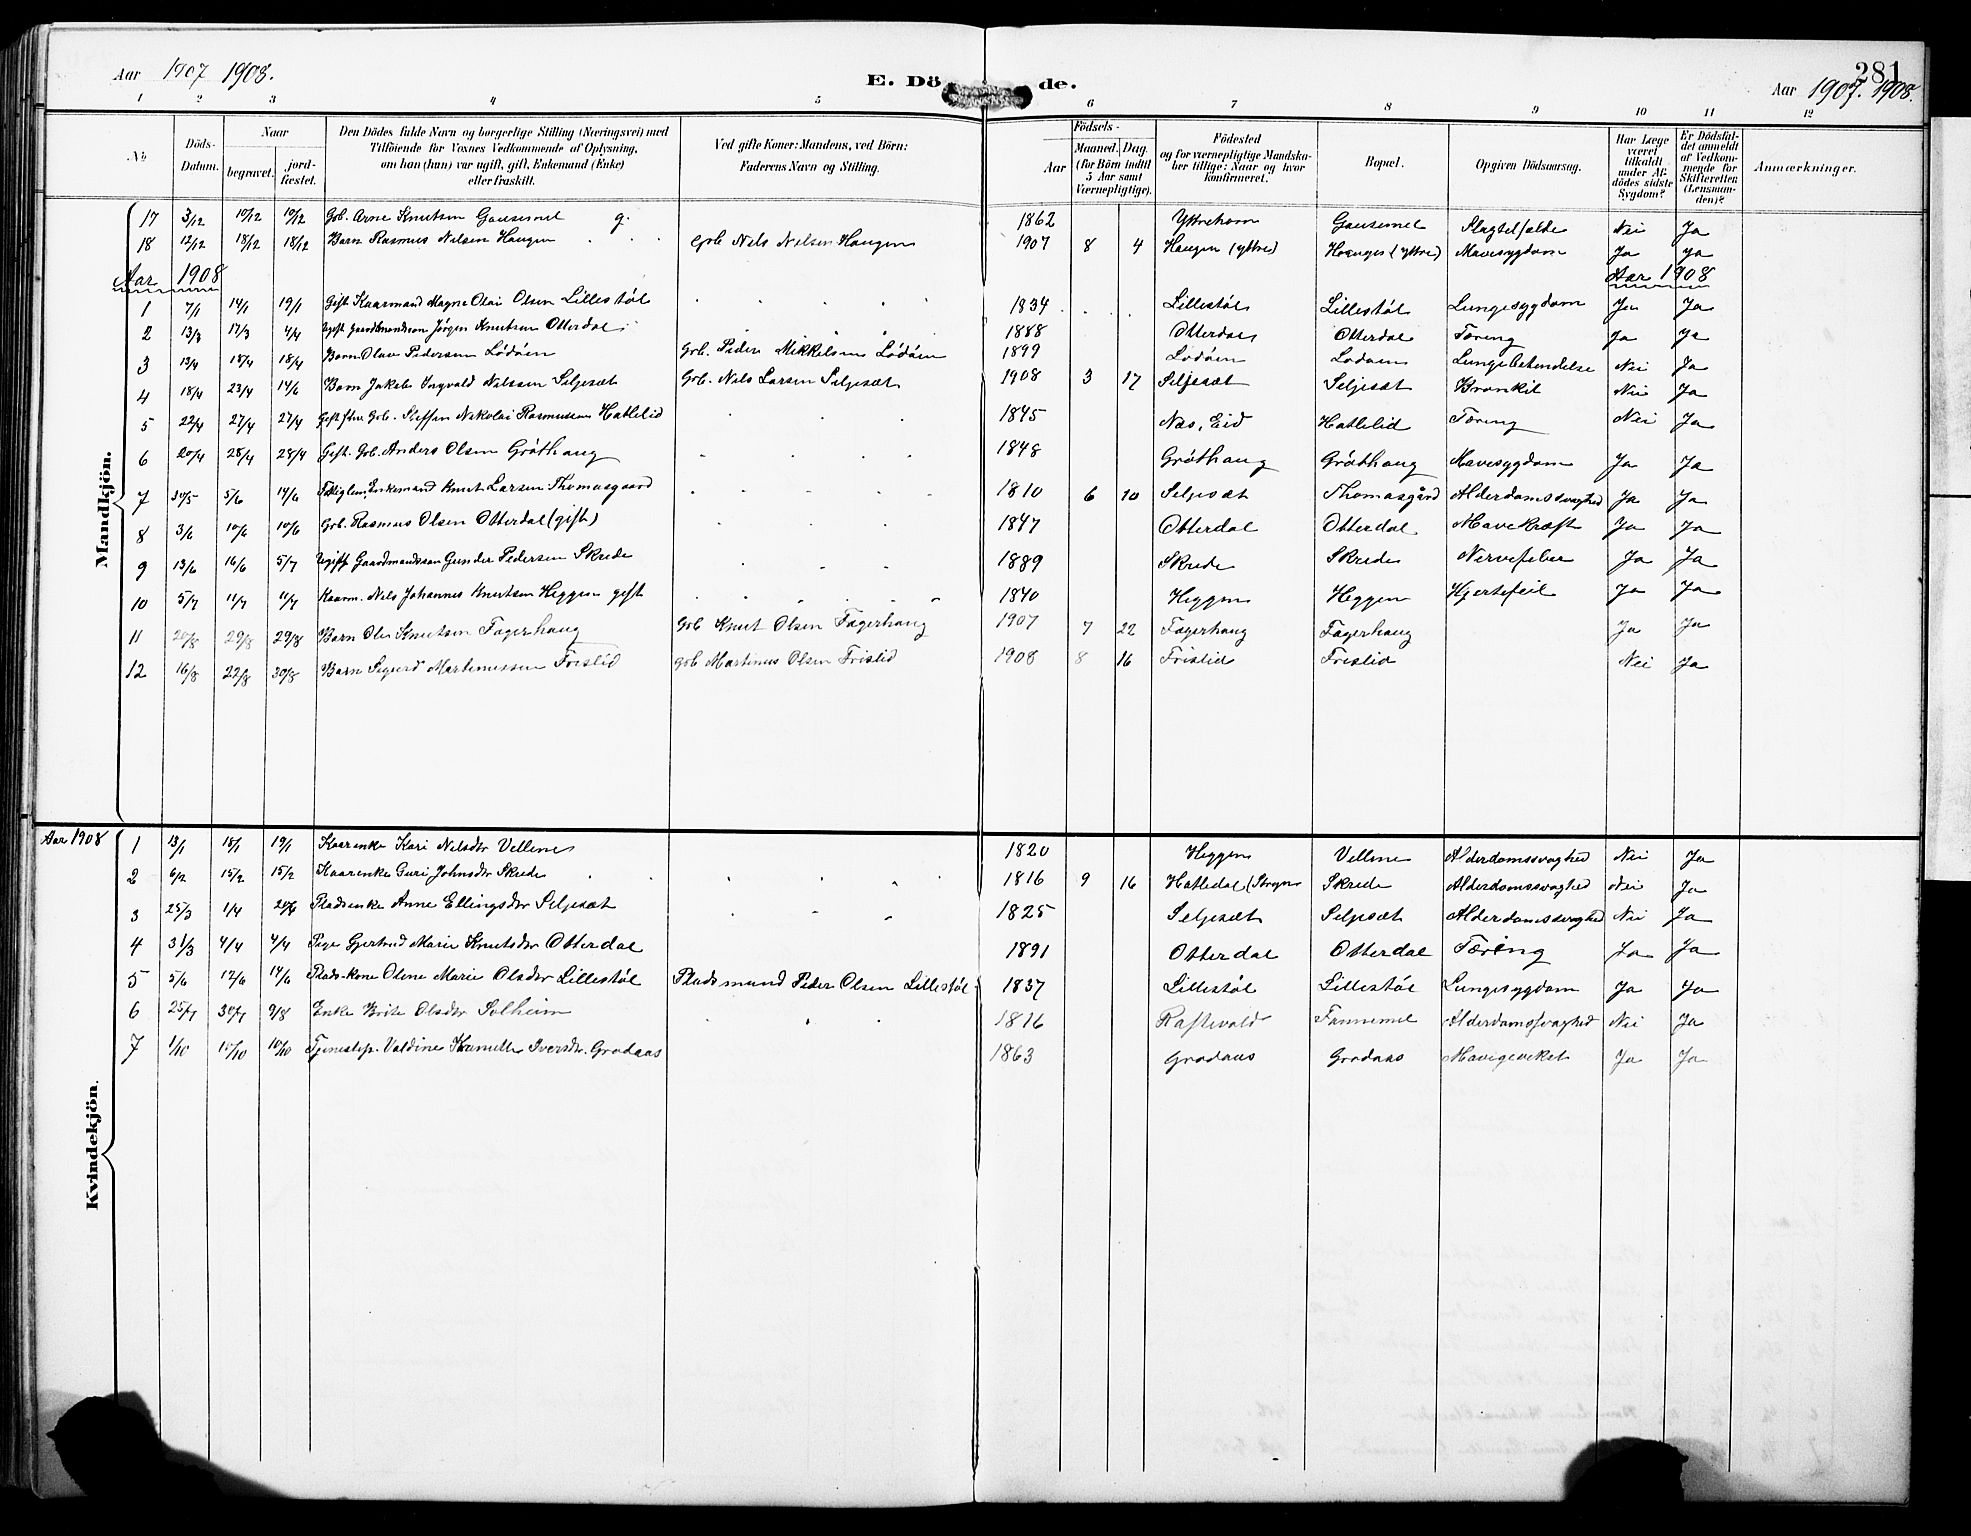 Aar 1907 1908.
E. Dö de.
281
Aar 1907. 1908.
1 2 3 4 5 6 7 8 9 10 11 12
No
Döds-Datum.
Naar begravet. jord-fæstet.
Den Dödes fulde Navn og borgerlige Stilling (Næringsvei) med Tilföiende for Voxnes Vedkommende af Oplysning, om han (hun) var ugift, gift, Enkemand (Enke) eller fraskilt.
Ved gifte Koner: Mandens, ved Börn: Faderens Navn og Stilling.
Födsels- Aar Maaned. Dag. (for Börn indtil 5 Aar samt Værnepligtige).
Födested og for værnepligtige Mandska-ber tillige: Naar og hvor konfirmeret.
Bopæl.
Opgiven Dödsaarsag.
Har Læge været tilkaldt under Af-dödes sidste Sygdom?
Er Dödsfal-det anmeldt af Vedkom-mende for Skifteretten (Lensman-den)?
Anmærkninger.
Mandkjön.
17 3/12 10/12 10/12 Gbr. Arne Knutsen Gausemel g. 1862 Yttrehorn Gausemel Slagtilfælde Nei Ja
18 12/12 18/12 18/12 Barn Rasmus Nilsen Haugen Gbr Nils Nilsen Haugen 1907 8 4 Haugen (yttre) Haugen (yttre) Mavesygdom Ja Ja
Aar 1908 Aar 1908
1 7/1 14/1 19/1 Gift Kaarmand Magne Olai Olsen Lillestöl 1834 Lillestöl Lillestöl Lungesygdom Ja Ja
2 13/3 17/3 4/4 Ugift Gaardmandssön Jörgen Knutsen Otterdal 1888 Otterdal Otterdal Tæring Ja Ja
3 13/4 18/4 18/4 Barn Olav Pedersen Lödöen Gbr. Peder Mikkelsen Lödöen 1899 Lödöen Lödöen Lungebetendelse Nei Ja
4 18/4 23/4 14/6 Barn Jakob Ingvald Nilssen Seljesæt Gbr. Nils Larsen Seljesæt 1908 3 17 Seljesæt Seljesæt Bronkit Nei Ja
5 22/4 27/4 27/4 Gift fhv. Gbr. Steffen Nikolai Rasmussen Hatlelid 1845 Nos, Eid Hatlelid Tæring Nei Ja
6 20/4 28/4 28/4 Gift. Gbr. Anders Olsen Gröthaug 1848 Gröthaug Gröthaug Mavesygdom Ja Ja
7 30/5 5/6 14/6 Fattiglem, Enkemand Knut Larsen Thomasgaard 1810 6 10 Seljesæt Thomasgård Alderdomssvaghed Ja Ja
8 3/6 10/6 10/6 Gbr. Rasmus Olsen Otterdal (gift) 1847 Otterdal Otterdal Mavekræft Ja Ja
9 13/6 16/6 5/7 Ugift Gaardmandssön Gunder Pedersen Skrede 1889 Skrede Skrede Nervefeber Ja Ja
10 5/7 11/7 11/7 Kaarm. Nils Johannes Knutsen Heggen gift 1840 Heggen Heggen Hjertefeil Ja Ja
11 20/8 29/8 29/8 Barn Ole Knutsen Fagerhaug Gbr Knut Olsen Fagerhaug 1907 7 22 Fagerhaug Fagerhaug Ja Ja
12 16/8 22/8 30/8 Barn Sigurd Martinussen Frislid Gbr Martinus Olsen Frislid 1908 8 16 Frislid Frislid Nei Ja
Kvindekjön.
Aar 1908
1 13/1 18/1 19/1 Kaarenke Kari Nilsdtr Vellene 1820 Heggen Vellene Alderdomssvaghed Nei Ja
2 6/2 15/2 15/2 Kaarenke Guri Johnsdtr Skrede 1816 9 16 Hatledal (Stryn Skrede Alderdomssvaghed Nei Ja
3 25/3 1/4 Pladsenke Anne Ellingsdtr Seljesæt 1825 Seljesæt Seljesæt Alderdomssvaghed Nei Ja
4 31/3 4/4 4/4 Pige Gjertrud Marie Knutsdtr Otterdal 1891 Otterdal Otterdal Tæring Ja Ja
5 5/6 12/6 14/6 Plads-kone Olene Marie Olsdtr Lillestöl Pladsmand Peder Olsen Lillestöl 1837 Lillestöl Lillestöl Lungesygdom Ja Ja
6 25/7 30/7 9/8 Enke Brite Olsdtr Solheim 1816 Raftevold Tannemel Alderdomssvaghed Nei Ja
7 1/10 10/10 10/10 Tjenestep. Valdine Kamille Iversdtr. Grodaas 1863 Grodaas Grodaas Ja Ja